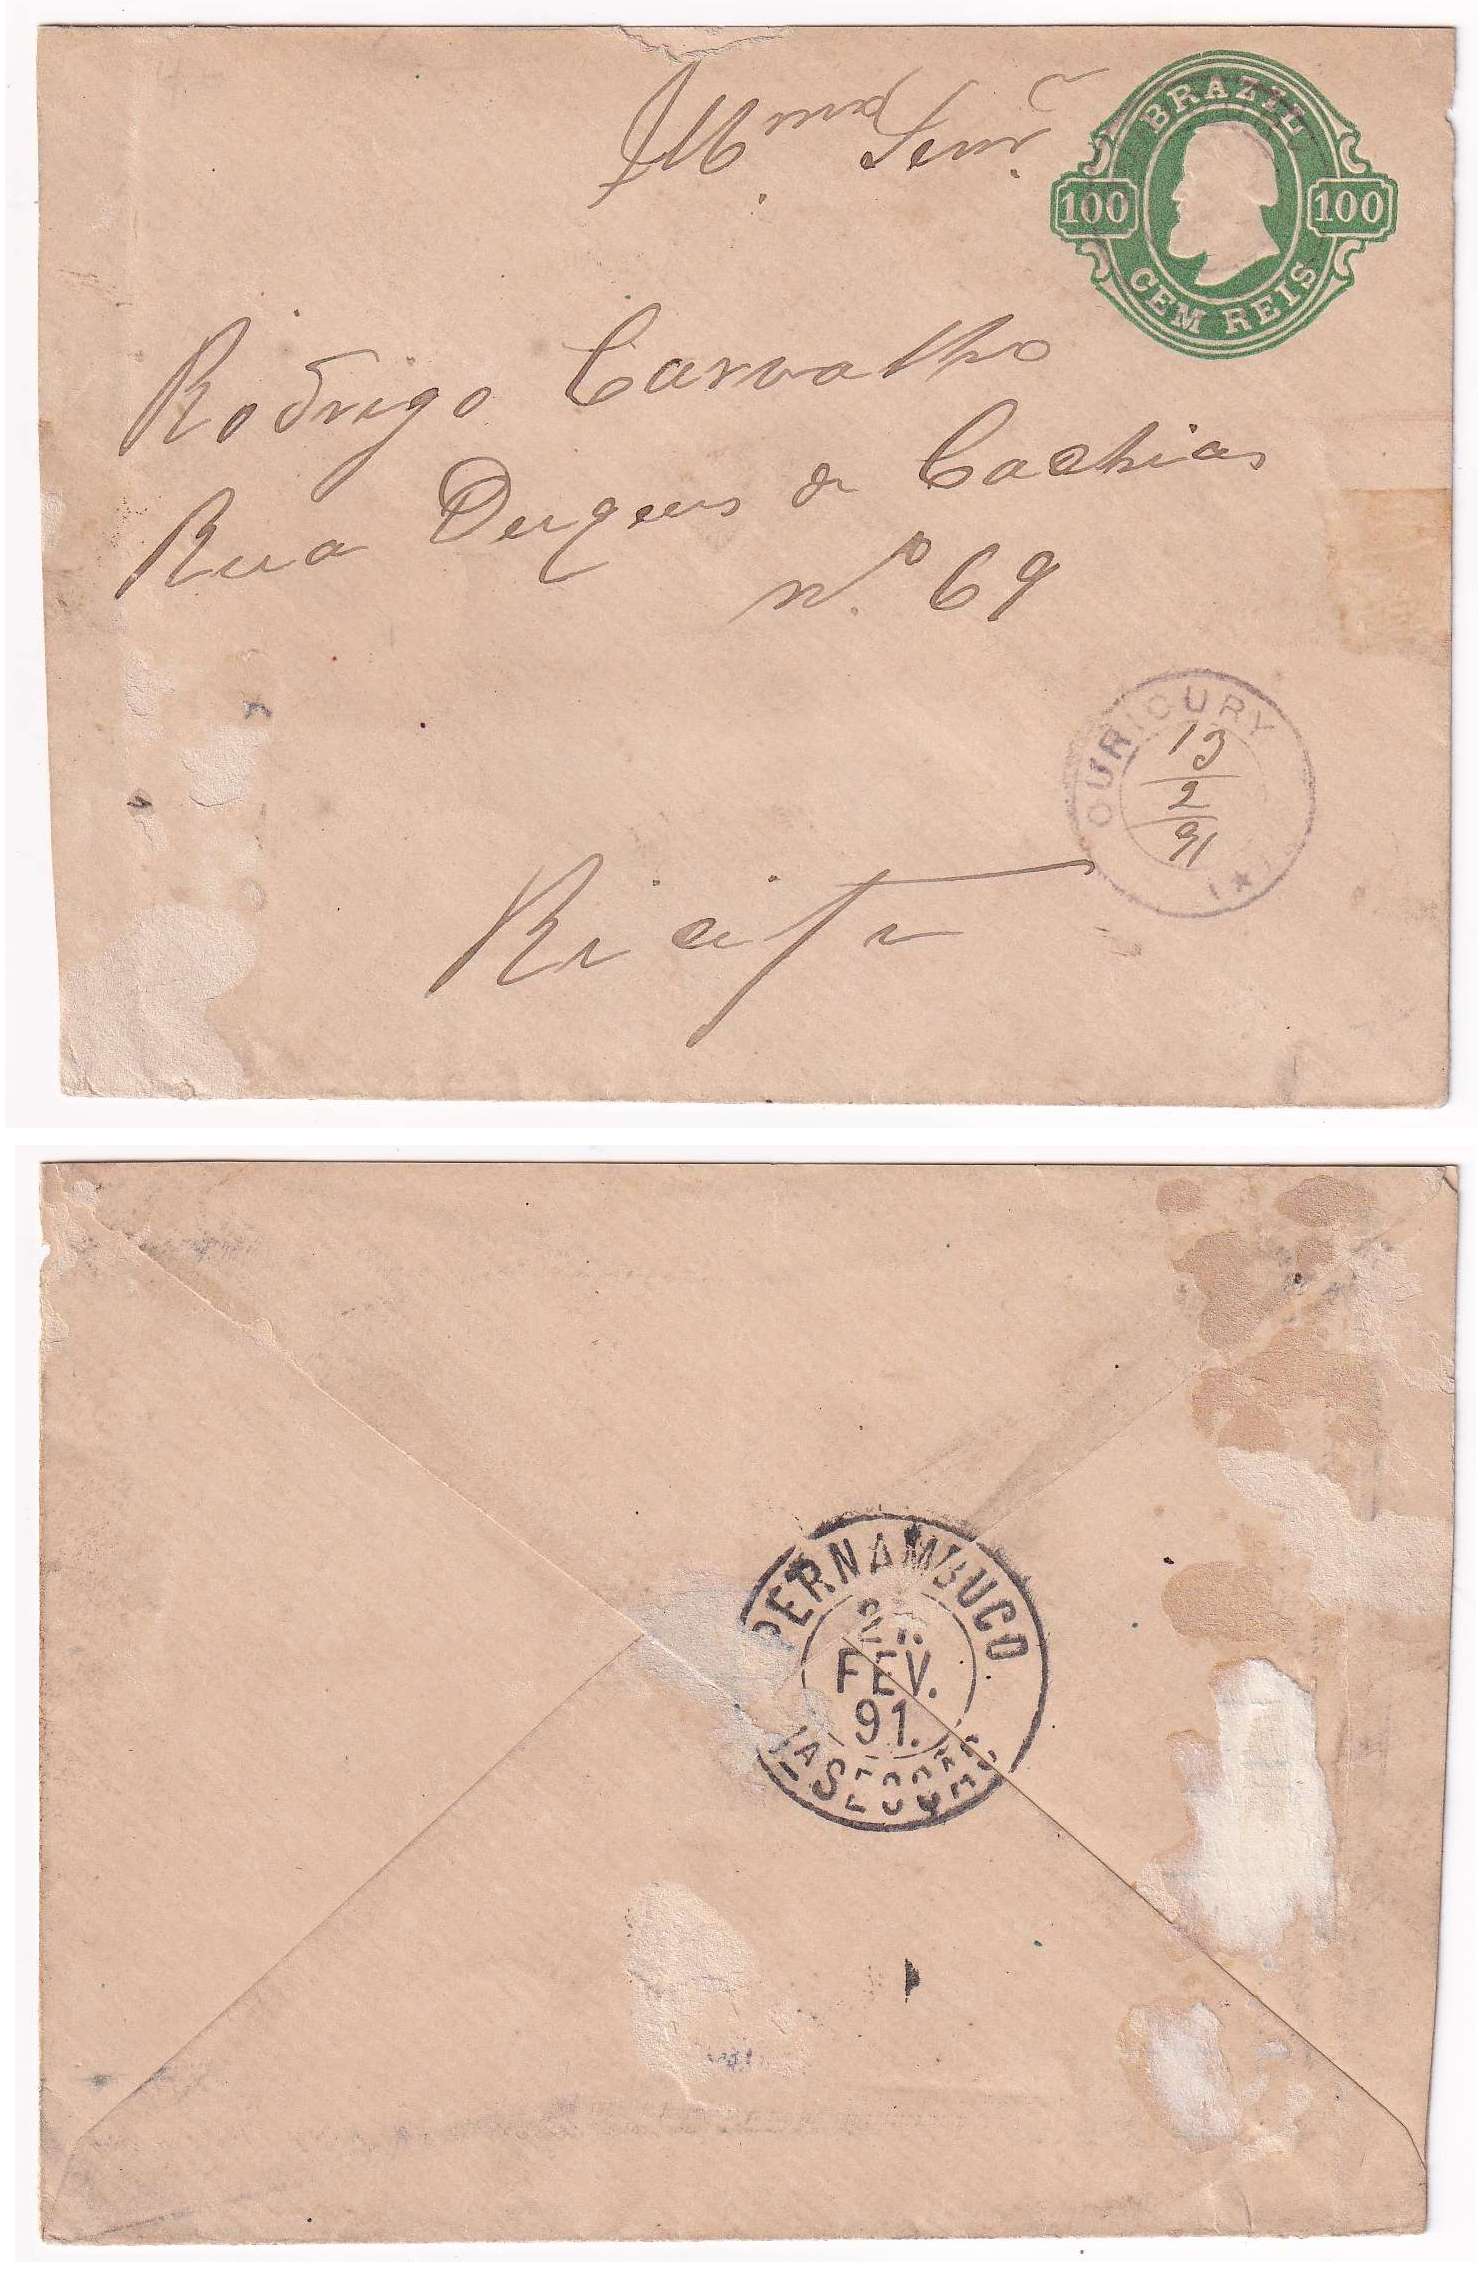 BRAZIL
100 100
CEM REIS
Rodrigo Carvalho
Rua Duques de Cachias
nº 69
OURICURY
13
2
91
Ricife
PERNAMBUCO
FEV.
91.
1ª SECÇÃO